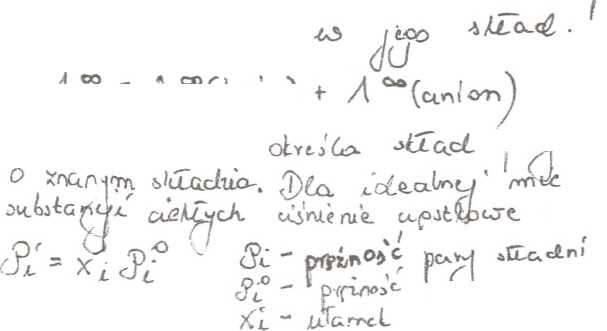 w jego skład.
+ Λ∞(anion)
określa skład
o znanym składzie. Dla idealnej
substancji ciekłych ciśnienie
Pi = xi Pi⁰ Pi - prężność pary składni
Pi⁰ - prężność
xi - ułamek